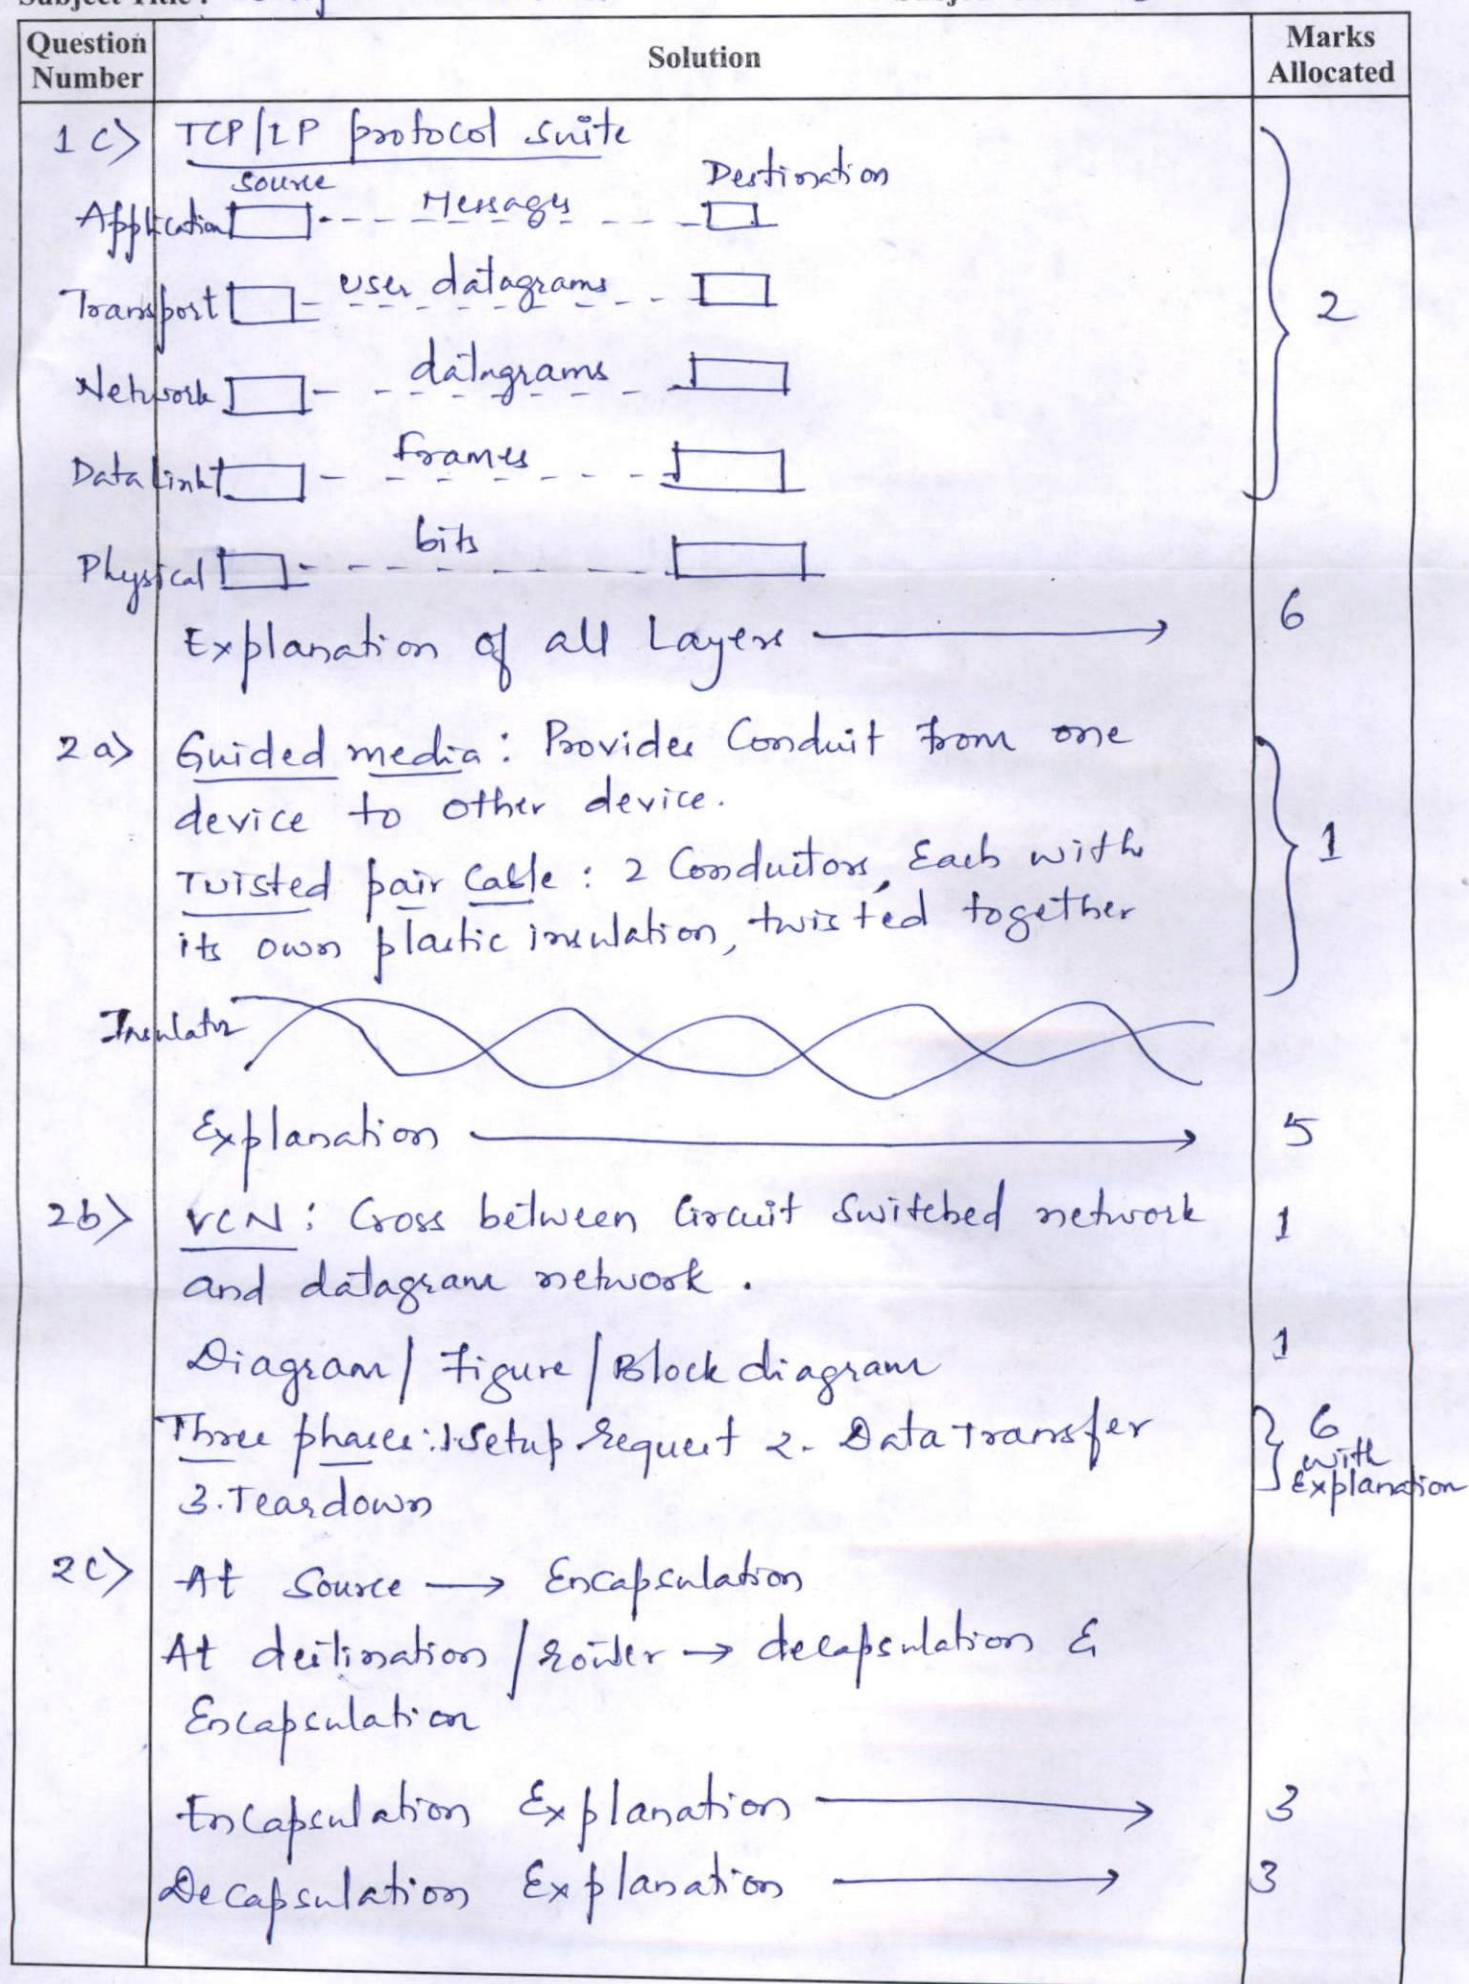 Subject Title :
Question Number
Solution
Marks Allocated
1 c) TCP/IP protocol suite
Source
Destination
Application
Messages
Transport
user datagrams
2
Network
datagrams
Data link
frames
Physical
bits
Explanation of all Layers → 6
2 a) Guided media : Provides Conduit from one
device to other device.
1
Twisted pair Cable : 2 Conductors, Each with
its own plastic insulation, twisted together
Insulator
Explanation → 5
2b) VCN : Cross between Circuit Switched network 1
and datagram network .
Diagram / Figure / Block diagram 1
Three phases : 1. Setup request 2. Data Transfer 6
with
3. Teardown Explanation
2c) At Source → Encapsulation
At destination / router → decapsulation &
Encapsulation
Encapsulation Explanation → 3
Decapsulation Explanation → 3